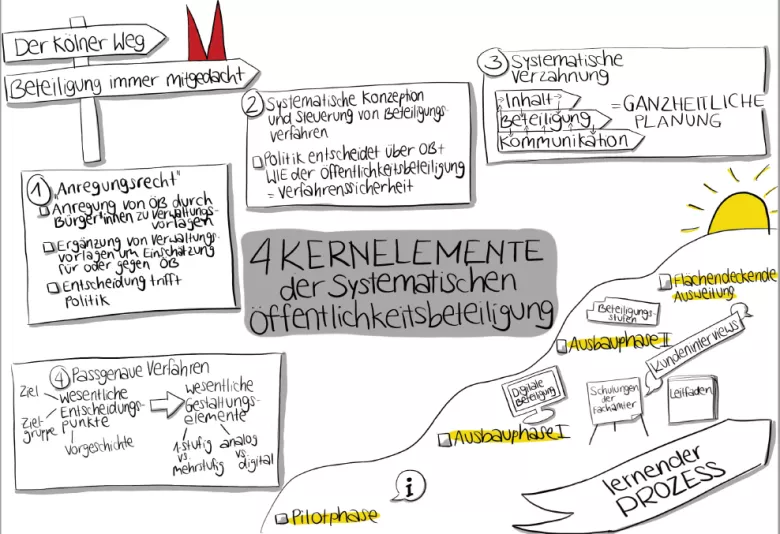 Der Kölner Weg
Beteiligung immer mitgedacht
1 "Anregungsrecht"
Anregung von ÖB durch
Bürger*innen zu Verwaltungs-
vorlagen
Ergänzung von Verwaltungs-
vorlagen um Einschätzung
für oder gegen ÖB
Entscheidung trifft
Politik
2 Systematische Konzeption
und Steuerung von Beteiligungs-
verfahren
Politik entscheidet über OB+
WIE der Öffentlichkeitsbeteiligung
= Verfahrenssicherheit
3 Systematische
Verzahnung
Inhalt
Beteiligung
Kommunikation
= GANZHEITLICHE
PLANUNG
4 KERNELEMENTE
der Systematischen
Öffentlichkeitsbeteiligung
4 Passgenaue Verfahren
Ziel
Zielgruppe
Wesentliche
Entscheidungs-
punkte
Vorgeschichte
wesentliche
Gestaltungs-
elemente
1-stufig
vs.
mehrstufig
analog
vs.
digital
Flächendeckende
Ausweitung
Beteiligungs-
stufen
Ausbauphase II
Kundeninterviews
Digitale
Beteiligung
Schulungen
der
Fachämter
Leitfaden
Ausbauphase I
i
Pilotphase
lernender
PROZESS